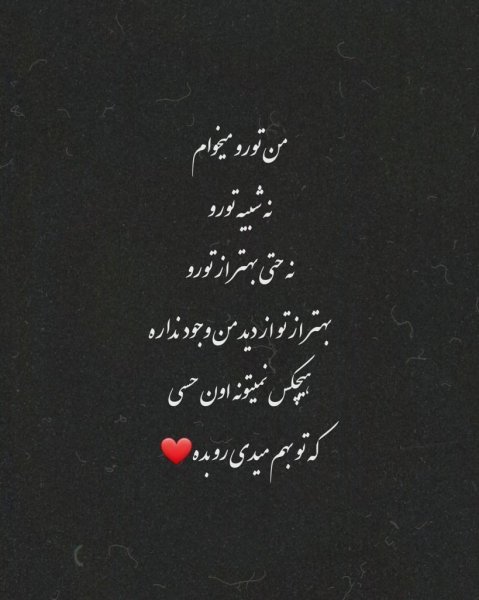 من تورو میخوام
نه شبیه تورو
نه حتی بهتر از تورو
بهتر از تو از دید من وجود نداره
هیچکس نمیتونه اون حسی
که تو بهم میدی رو بده❤️